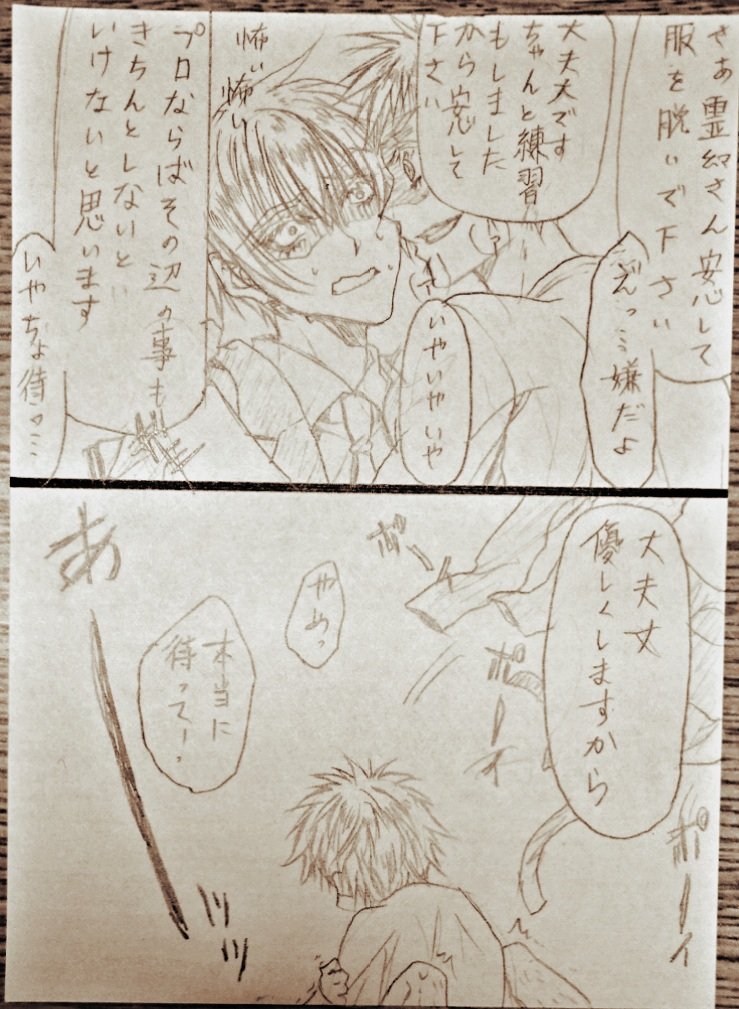 さあ霊幻さん安心して
服を脱いで下さい
えっ…嫌だよ
大夫夫です
ちゃんと練習
もしました
から安心して
下さい
いやいやいや
怖い怖い
プロならばその辺の事も
きちんとしないと
いけないと思います
いやちょ待っ…
大夫丈
優しくしますから
ポーイ
ポーイ
ポーイ
やめっ
本当に
待ってー!
あ